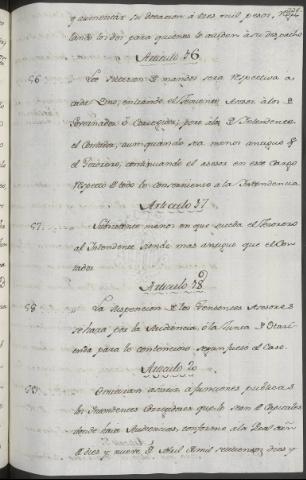 y aumentar su dotacion á tres mil pesos,
los dos para quienes le auxilien á su despacho
Articulo 56
56. La sucesion de mandos será respectiva a
cada Uno, entrando el Teniente Asesor á los de
Governador ó Corregidor; pero á la de Intendente
el Contador, aun quando sea menos antiguo q.
el Tesorero, continuando el asesor en este Cargo
respecto de todo lo concerniente a la Intendencia
Articulo 57
57. Subsistirá menos en que suceda el Tesorero
al Intendente siendo mas antiguo que el Con-
tador
Articulo 58
58. La suspencion de los Tenientes Asesores
se hará por la Audiencia, ó la Junta de R.l Haci-
enda para lo contencioso segun fuese el Caso.
Articulo
á funciones publicas
los Intendentes Corregidores que lo sean de Capitales
donde haia Audiencias, conforme a la Real orn.
de dies y nueve de Abril de mil setecientos dies y